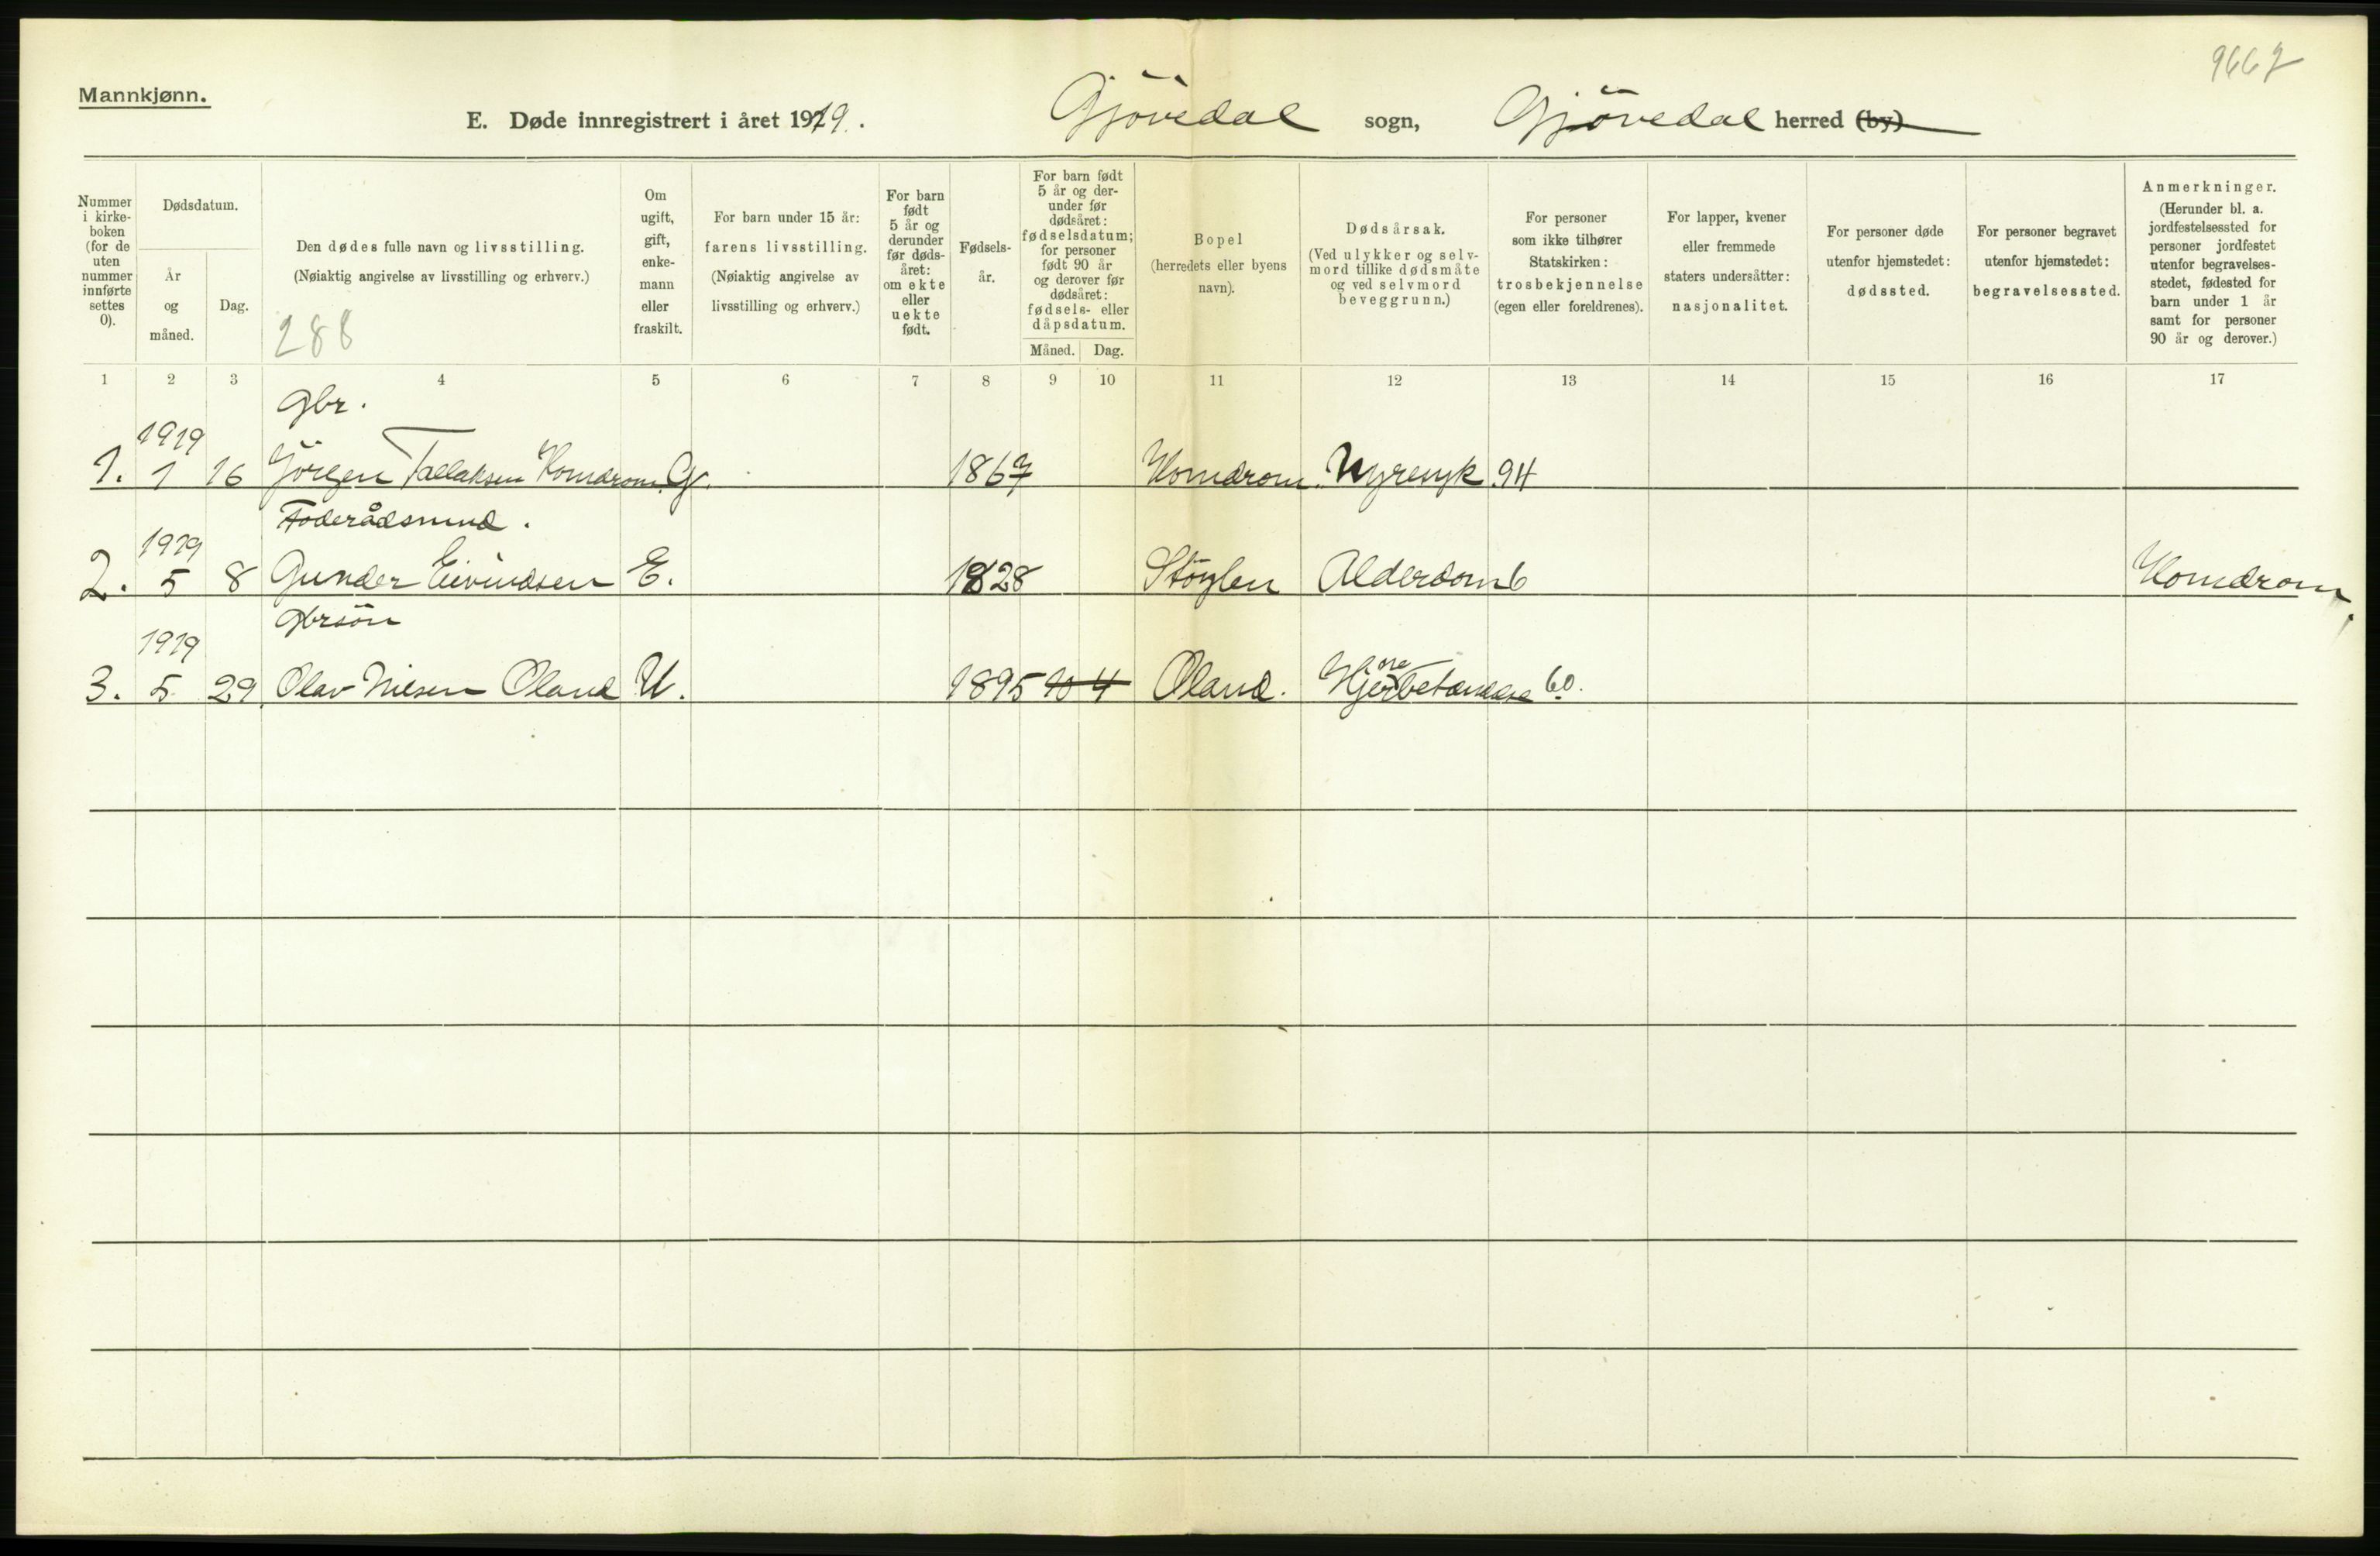 9667
Mannkjønn.
E. Døde innregistrert i året 1919. Gjövedal sogn, Gjövedal herred (by)
Nummer i kirkeboken (for de uten nummer innførte settes 0).
Dødsdatum.
År og måned.
Dag.
Den dødes fulle navn og livsstilling.
(Nøiaktig angivelse av livsstilling og erhverv.)
288
Om ugift, gift, enkemann eller fraskilt.
For barn under 15 år: farens livsstilling.
(Nøiaktig angivelse av livsstilling og erhverv.)
For barn født 5 år og derunder før dødsåret: om ekte eller uekte født.
Fødselsår.
For barn født 5 år og derunder før dødsåret: fødselsdatum; for personer født 90 år og derover før dødsåret: fødsels- eller dåpsdatum.
Måned. Dag.
Bopel
(herredets eller byens navn).
Dødsårsak.
(Ved ulykker og selvmord tillike dødsmåte og ved selvmord beveggrunn.)
For personer som ikke tilhører Statskirken: trosbekjennelse (egen eller foreldrenes).
For lapper, kvener eller fremmede staters undersåtter: nasjonalitet.
For personer døde utenfor hjemstedet: dødssted.
For personer begravet utenfor hjemstedet: begravelsessted.
Anmerkninger.
(Herunder bl. a. jordfestelsessted for personer jordfestet utenfor begravelsesstedet, fødested for barn under 1 år samt for personer 90 år og derover.)
1 2 3 4 5 6 7 8 9 10 11 12 13 14 15 16 17
gbr.
1919
1. 1 16 Jörgen Tallaksen Homdrom. G. 1867 Homdrom. Nyresyk 94
Foderådsmnd.
1919
2. 5 8 Gunder Eivindsen E. 1828 Stöylen Alderdom 6 Homdrom.
gbrsön
1919
3. 5 29 Olav Nilsen Öland U. 1895 10 4 Öland. Hjernebetændelse 60.